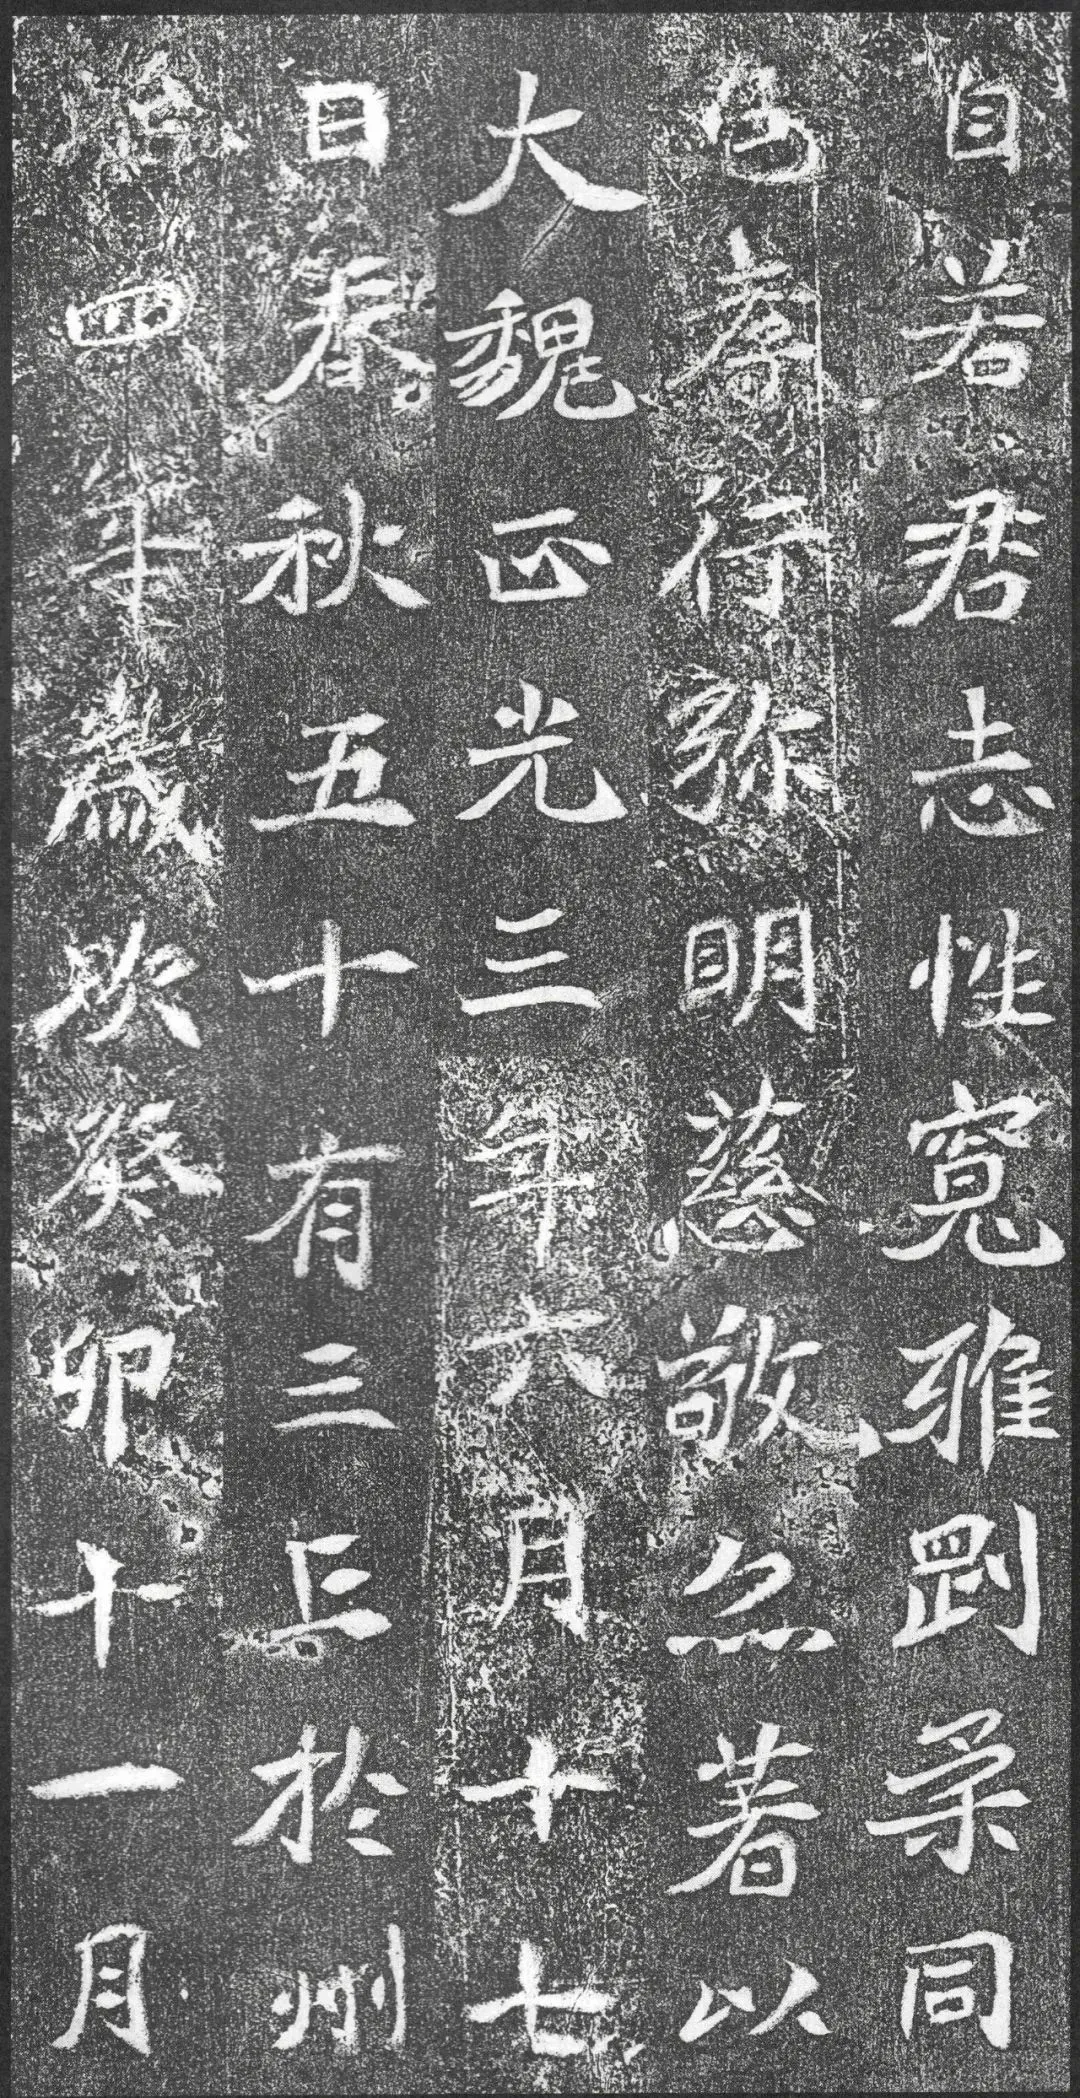 自若君志性寬雅剛柔同
色孝行弥明慈敬著以
大魏正光三年六月十七
日春秋五十有三亡於州
治四年歲次癸卯十一月